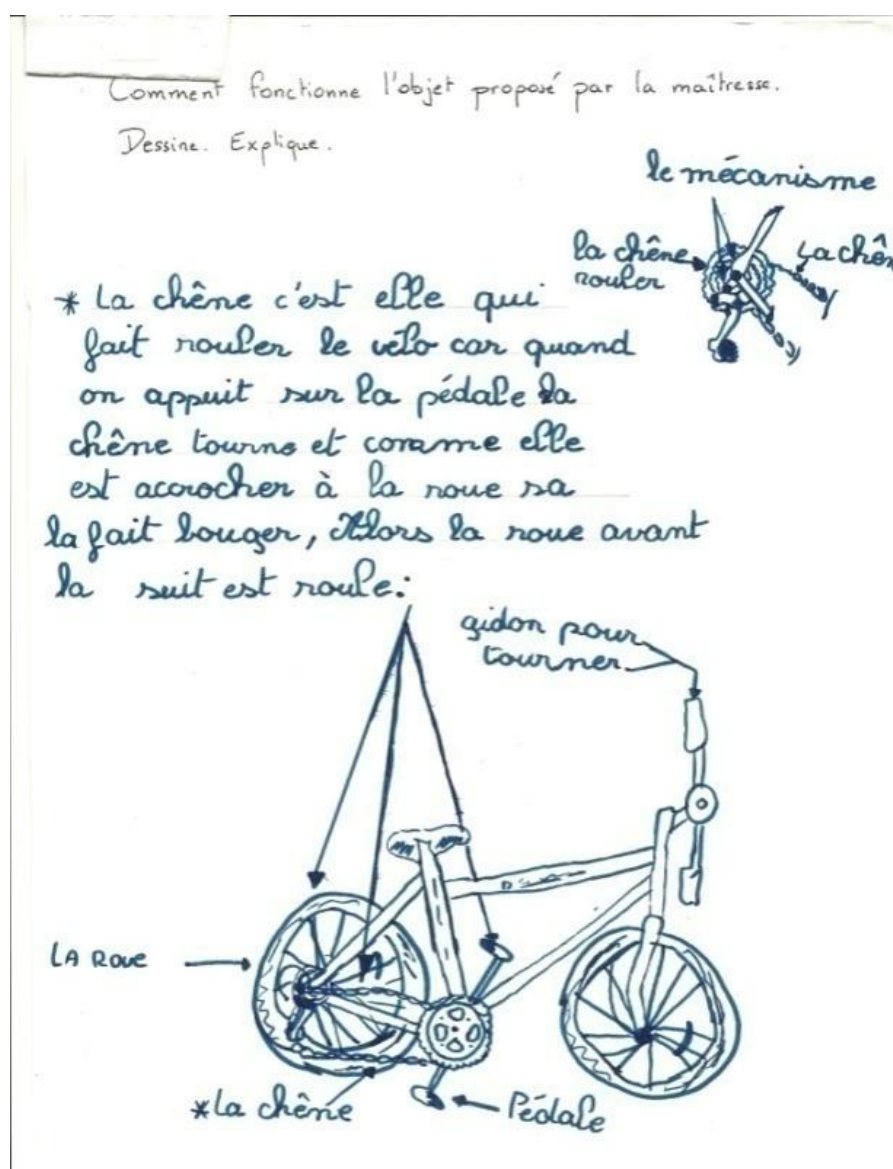 Comment fonctionne l'objet proposé par la maîtresse.
Dessine. Explique.
le mécanisme
la chêne
rouler
La chên
* La chêne c'est elle qui
fait rouler le vélo car quand
on appuit sur la pédale la
chêne tourne et comme elle
est accrocher à la roue sa
la fait bouger, Alors la roue avant
la suit est roule:
gidon pour
tourner
LA ROUE
*La chêne
Pédale